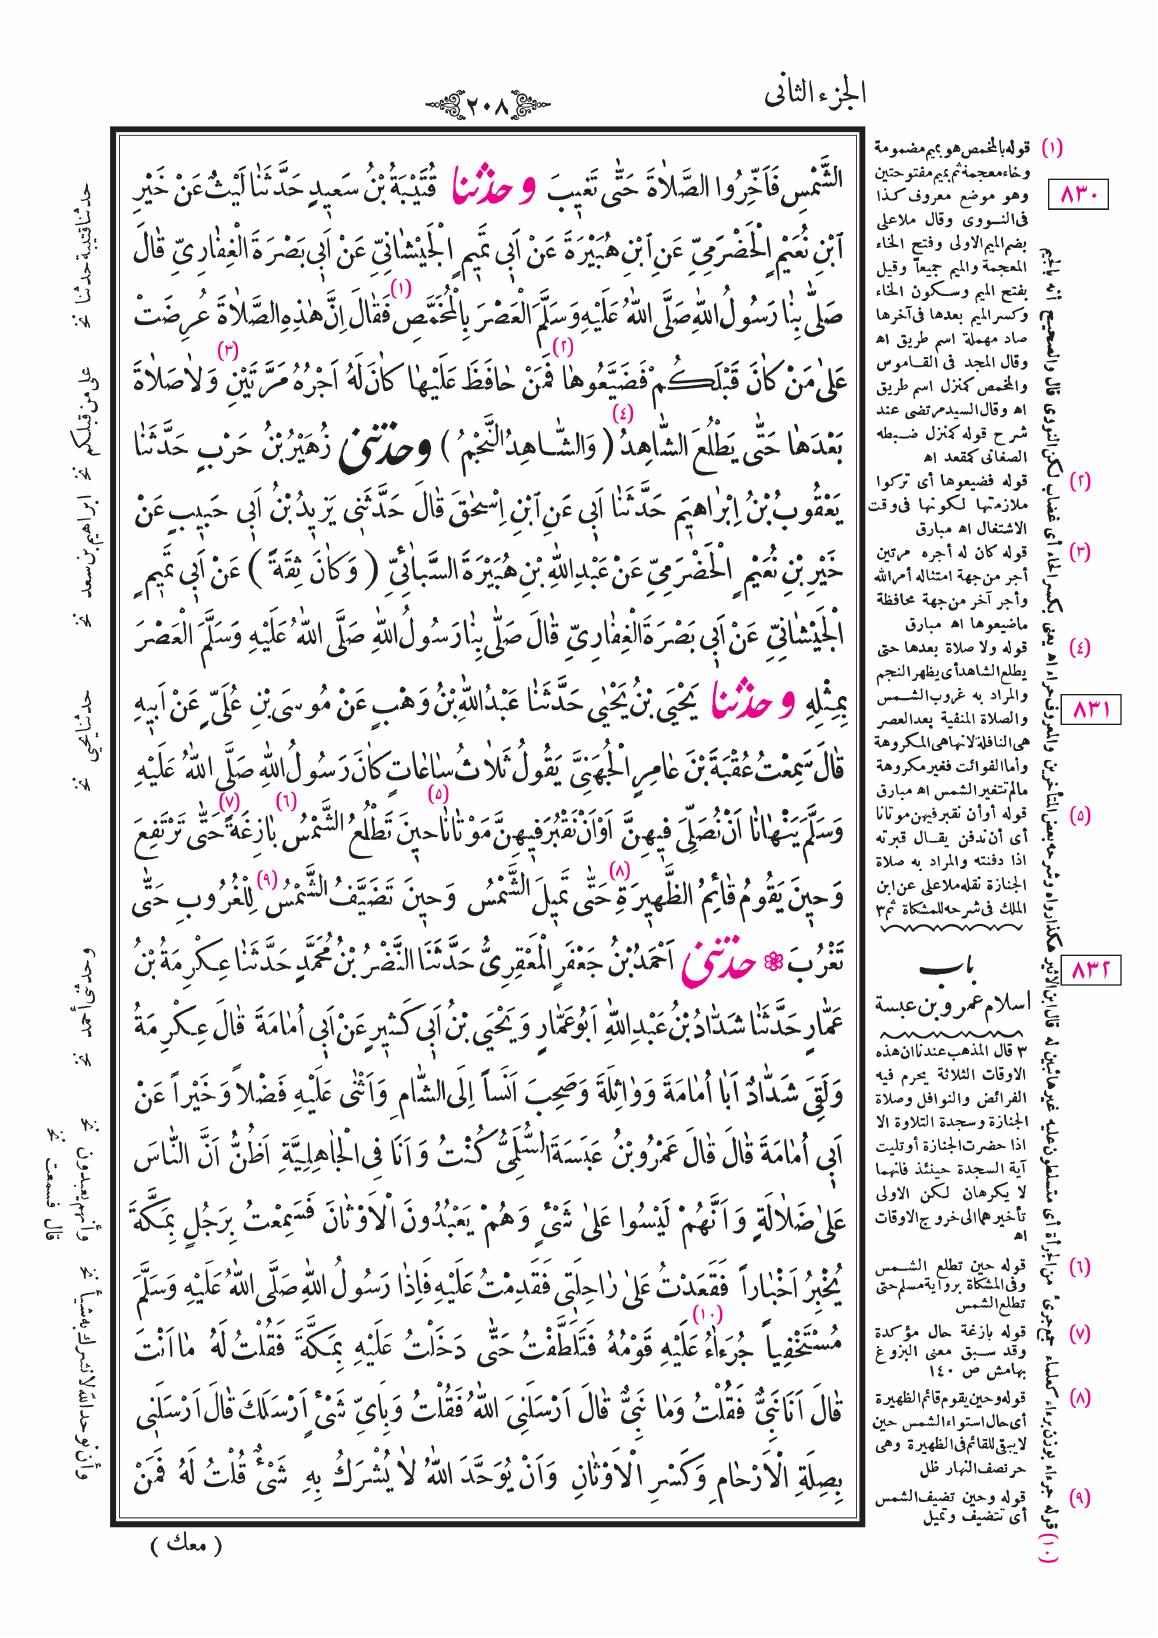 الجزء الثانى
٢٠٨
الشَّمْسِ فَأَخِّرُوا الصَّلاَةَ حَتّٰى تَغيبَ وحدثنا قُتَيْبَةُ بْنُ سَعيدٍ حَدَّثَنٰا لَيْثٌ عَنْ خَيْرِ
ابْنِ نُعَيْمٍ الْحَضْرَمِيِّ عَنِ ابْنِ هُبَيْرَةَ عَنْ اَبي تَميمٍ الْجَيْشٰانِيِّ عَنْ اَبي بَصْرَةَ الْغِفٰارِيِّ قٰالَ
صَلّٰى بِنٰا رَسُولُ اللّٰهِ صَلَّى اللّٰهُ عَلَيْهِ وَسَلَّمَ الْعَصْرَ بِالْمُخَمَّصِ (١) فَقٰالَ اِنَّ هٰذِهِ الصَّلاٰةَ عُرِضَتْ
عَلىٰ مَنْ كٰانَ قَبْلَكُمْ فَضَيَّعُوهٰا (٢) فَمَنْ حٰافَظَ عَلَيْهٰا كٰانَ لَهُ اَجْرُهُ مَرَّتَيْنِ (٣) وَلاٰ صَلاٰةَ
بَعْدَهٰا حَتّٰى يَطْلُعَ الشّٰاهِدُ (٤) (وَالشّٰاهِدُ النَّجْمُ) وحدثنى زُهَيْرُ بْنُ حَرْبٍ حَدَّثَنٰا
يَعْقُوبُ بْنُ اِبْرٰاهيمَ حَدَّثَنٰا اَبي عَنِ ابْنِ اِسْحٰقَ قٰالَ حَدَّثَنى يَزيدُ بْنُ اَبي حَبيبٍ عَنْ
خَيْرِ بْنِ نُعَيْمٍ الْحَضْرَمِيِّ عَنْ عَبْدِ اللّٰهِ بْنِ هُبَيْرَةَ السَّبَائِيِّ (وَكٰانَ ثِقَةً) عَنْ اَبي تَميمٍ
الْجَيْشٰانِيِّ عَنْ اَبي بَصْرَةَ الْغِفٰارِيِّ قٰالَ صَلّٰى بِنٰا رَسُولُ اللّٰهِ صَلَّى اللّٰهُ عَلَيْهِ وَسَلَّمَ الْعَصْرَ
بِمِثْلِهِ وحدثنا يَحْيَى بْنُ يَحْيٰى حَدَّثَنٰا عَبْدُ اللّٰهِ بْنُ وَهْبٍ عَنْ مُوسَى بْنِ عُلَيٍّ عَنْ اَبيهِ
قٰالَ سَمِعْتُ عُقْبَةَ بْنَ عٰامِرٍ الْجُهَنِيَّ يَقُولُ ثَلاٰثُ سٰاعٰاتٍ كٰانَ رَسُولُ اللّٰهِ صَلَّى اللّٰهُ عَلَيْهِ
وَسَلَّمَ يَنْهٰانٰا اَنْ نُصَلِّىَ فيهِنَّ اَوْ اَنْ نَقْبُرَ فيهِنَّ مَوْتٰانٰا (٥) حينَ تَطْلُعُ الشَّمْسُ (٦) بٰازِغَةً (٧) حَتّٰى تَرْتَفِعَ
وَحينَ يَقُومُ قٰائِمُ الظَّهيرَةِ (٨) حَتّٰى تَميلَ الشَّمْسُ وَحينَ تَضَيَّفُ الشَّمْسُ (٩) لِلْغُرُوبِ حَتّٰى
تَغْرُبَ ❁ حدثنى اَحْمَدُ بْنُ جَعْفَرٍ الْمَعْقِرِىُّ حَدَّثَنَا النَّضْرُ بْنُ مُحَمَّدٍ حَدَّثَنٰا عِكْرِمَةُ بْنُ
عَمّٰارٍ حَدَّثَنٰا شَدّٰادُ بْنُ عَبْدِ اللّٰهِ اَبُو عَمّٰارٍ وَيَحْيَى بْنُ اَبي كَثيرٍ عَنْ اَبي اُمٰامَةَ قٰالَ عِكْرِمَةُ
وَلَقِىَ شَدّٰادٌ اَبٰا اُمٰامَةَ وَوٰاثِلَةَ وَصَحِبَ اَنَساً اِلَى الشّٰامِ وَاَثْنٰى عَلَيْهِ فَضْلاً وَخَيْراً عَنْ
اَبي اُمٰامَةَ قٰالَ قٰالَ عَمْرُو بْنُ عَبَسَةَ السُّلَمِىُّ كُنْتُ وَاَنَا فِى الْجٰاهِلِيَّةِ اَظُنُّ اَنَّ النّٰاسَ
عَلىٰ ضَلاٰلَةٍ وَاَنَّهُمْ لَيْسُوا عَلىٰ شَىْءٍ وَهُمْ يَعْبُدُونَ الْاَوْثٰانَ فَسَمِعْتُ بِرَجُلٍ بِمَكَّةَ
يُخْبِرُ اَخْبٰاراً فَقَعَدْتُ عَلىٰ رٰاحِلَتى فَقَدِمْتُ عَلَيْهِ فَاِذٰا رَسُولُ اللّٰهِ صَلَّى اللّٰهُ عَلَيْهِ وَسَلَّمَ
مُسْتَخْفِياً جُرَءٰاءُ (١٠) عَلَيْهِ قَوْمُهُ فَتَلَطَّفْتُ حَتّٰى دَخَلْتُ عَلَيْهِ بِمَكَّةَ فَقُلْتُ لَهُ مٰا اَنْتَ
قٰالَ اَنَا نَبِىٌّ فَقُلْتُ وَمٰا نَبِىٌّ قٰالَ اَرْسَلَنِىَ اللّٰهُ فَقُلْتُ وَبِاَىِّ شَىْءٍ اَرْسَلَكَ قٰالَ اَرْسَلَنى
بِصِلَةِ الْاَرْحٰامِ وَكَسْرِ الْاَوْثٰانِ وَاَنْ يُوَحَّدَ اللّٰهُ لاٰ يُشْرَكُ بِهِ شَىْءٌ قُلْتُ لَهُ فَمَنْ
( معك )
(١) قوله بالمخمص هو بميم مضمومة
وخاء معجمة ثم بميم مفتوحتين
وهو موضع معروف كذا
فى النووى وقال ملا على
بضم الميم الاولى وفتح الخاء
المعجمة والميم جميعاً وقيل
بفتح الميم وسكون الخاء
وكسر الميم بعدها فى آخرها
صاد مهملة اسم طريق اه
وقال المجد فى القاموس
والمخمص كمنزل اسم طريق
اه وقال السيد مرتضى عند
شرح قوله كمنزل ضبطه
الصغانى كمقعد اه
(٢) قوله فضيعوها أى تركوا
ملازمتها لكونها فى وقت
الاشتغال اه مبارق
(٣) قوله كان له أجره مرتين
أجر من جهة امتثاله أمر الله
وأجر آخر من جهة محافظة
ماضيعوها اه مبارق
(٤) قوله ولا صلاة بعدها حتى
يطلع الشاهد أى يظهر النجم
والمراد به غروب الشمس
والصلاة المنفية بعد العصر
هى النافلة لانها هى المكروهة
وأما الفوائت فغير مكروهة
مالم تتغير الشمس اه مبارق
(٥) قوله أو أن نقبر فيهن موتانا
أى أن ندفن يقال قبرته
اذا دفنته والمراد به صلاة
الجنازة نقله ملا على عن ابن
الملك فى شرحه للمشكاة ثم ٣
باب
اسلام عمرو بن عبسة
٣ قال المذهب عندنا ان هذه
الاوقات الثلاثة يحرم فيه
الفرائض والنوافل وصلاة
الجنازة وسجدة التلاوة الا
اذا حضرت الجنازة أو تليت
آية السجدة حينئذ فانهما
لا يكرهان لكن الاولى
تأخيرهما الى خروج الاوقات
اه
(٦) قوله حين تطلع الشمس
وفى المشكاة برواية مسلم حتى
تطلع الشمس
(٧) قوله بازغة حال مؤكدة
وقد سبق معنى البزوغ
بهامش ص ١٤٠
(٨) قوله وحين يقوم قائم الظهيرة
أى حال استواء الشمس حين
لا يبقى للقائم فى الظهيرة وهى
حر نصف النهار ظل
(٩) قوله وحين تضيف الشمس
أى تتضيف وتميل
٨٣٠
٨٣١
٨٣٢
(١٠) قوله جرءاء بوزن برءاء كعلماء جمع جرىء من الجرأة أى متسلطون عليه غير هائبين له قال ابن الاثير هكذا رواه وشرحه بعض المتأخرين والمعروف حراء اه يعنى بكسر الحاء أى غضاب لكن النووى قال والصحيح أنه بالجيم
حدثنا قتيبة حدثنا نخ
على من قبلكم نخ
ابراهيم بن سعد نخ
حدثنا يحيى نخ
وحدثنى أحمد نخ
وأنهم يعبدون نخ
قال فسمعت نخ
وأن نوحد الله لانشرك به شيأ نخ